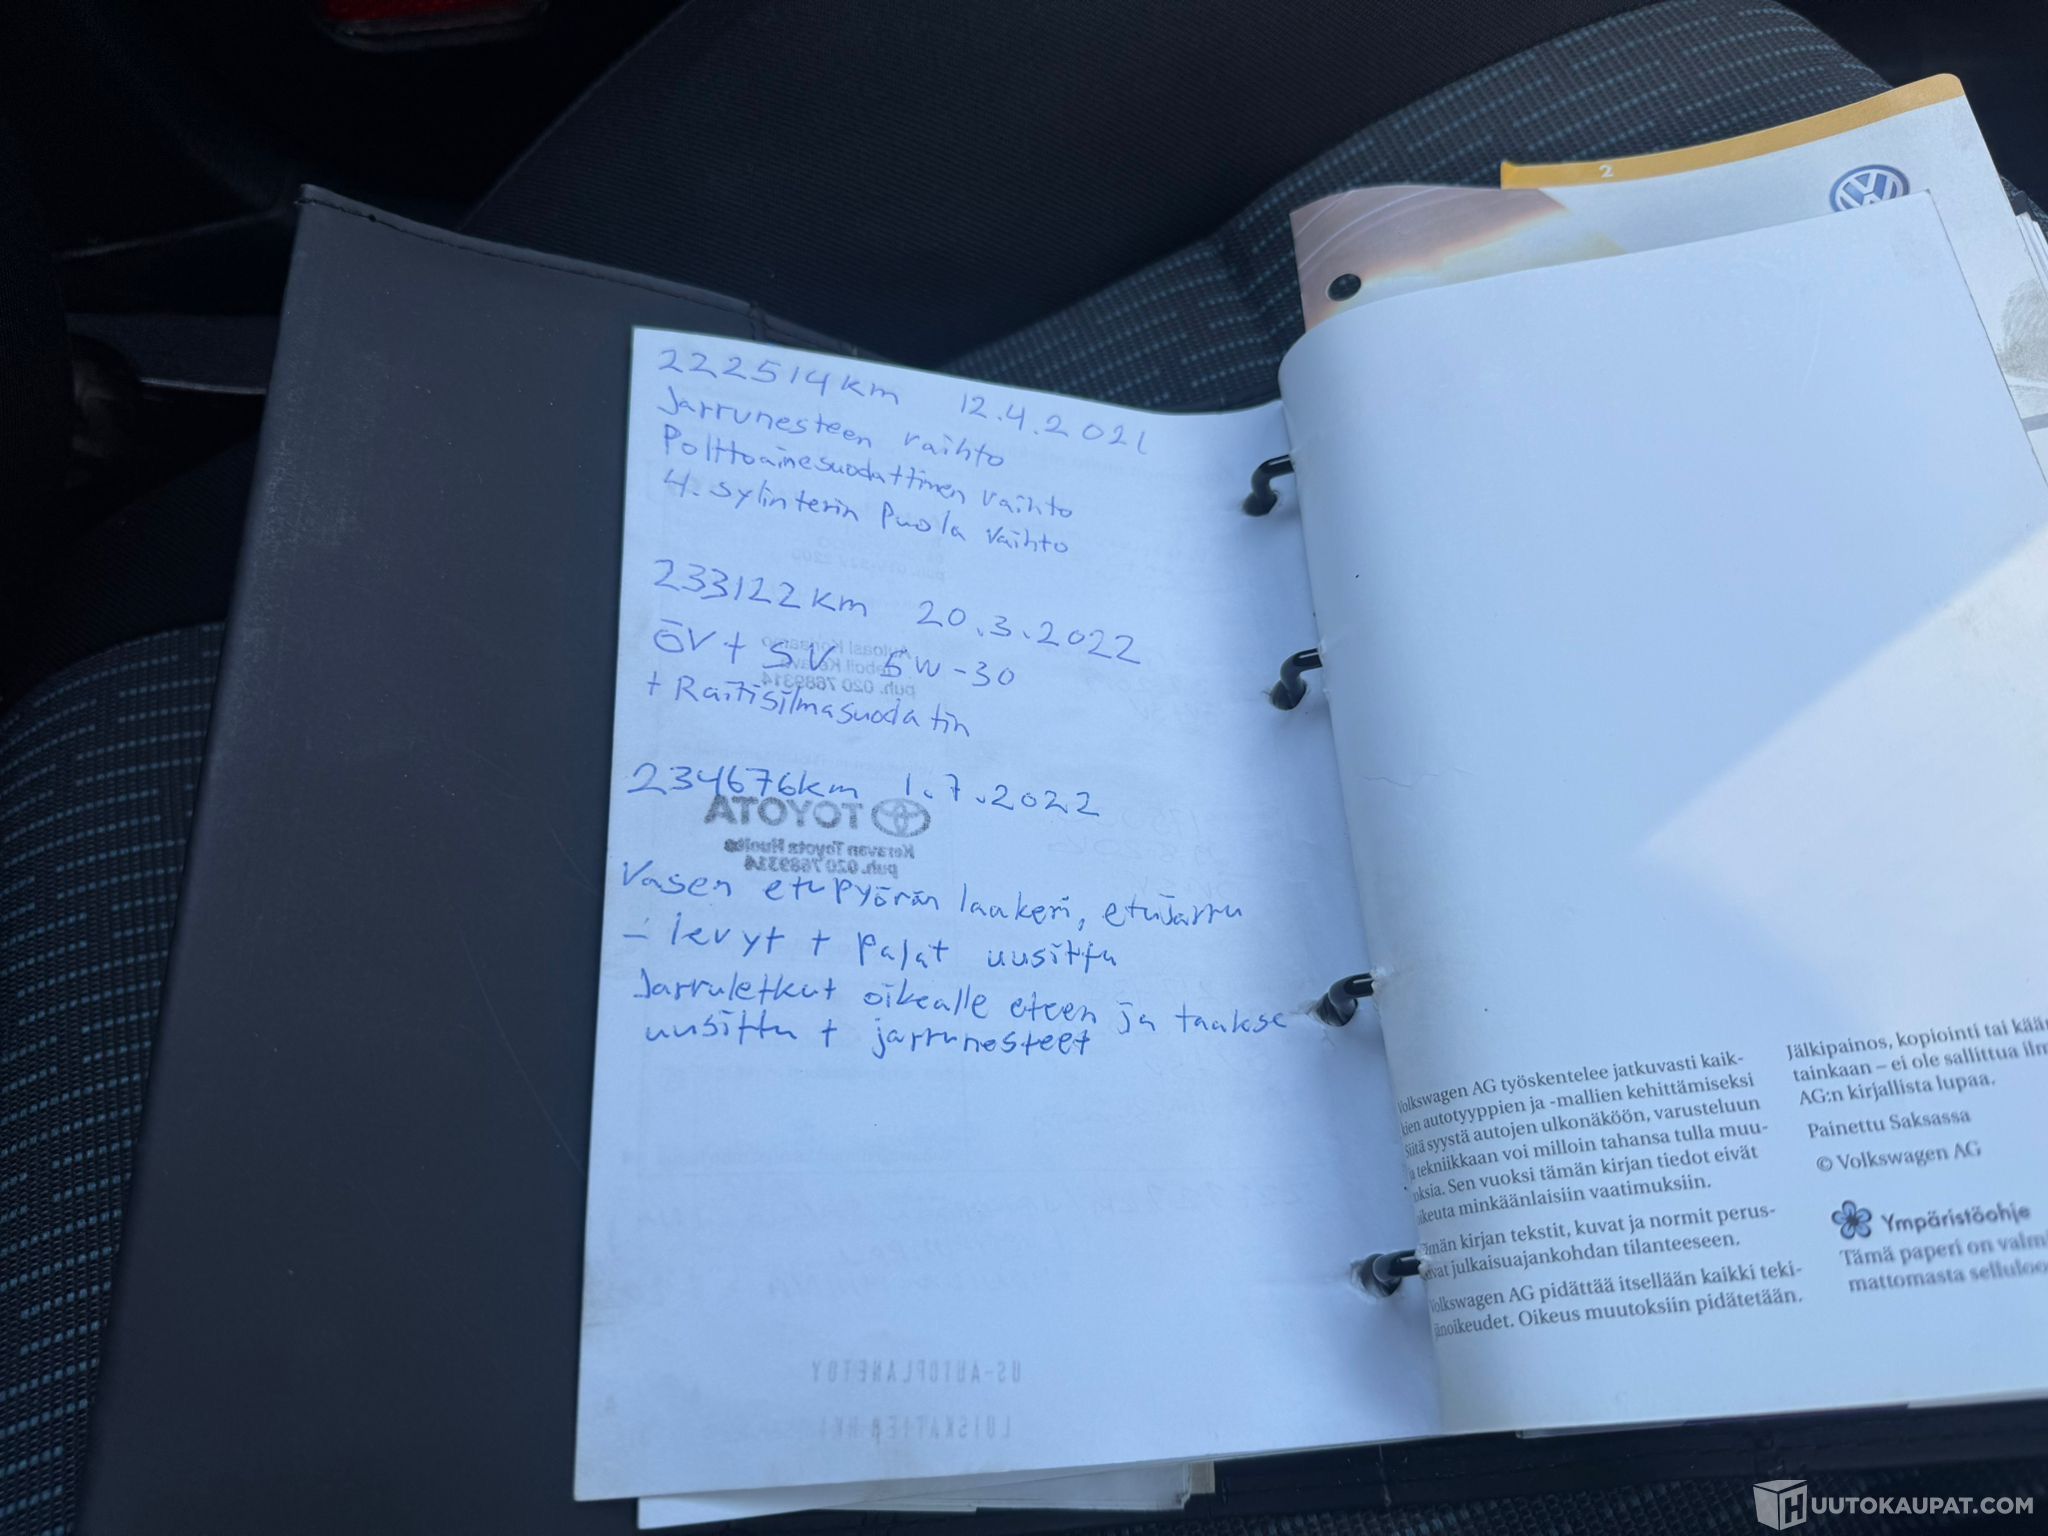 222514km 12.4.2021
Jarrunesteen vaihto
Polttoainesuodattimen vaihto
4. sylinterin Puola vaihto
233122km 20.3.2022
ÖV + SV 5W-30
+ Raitisilmasuodatin
234676km 1.7.2022
TOYOTA
Keravan Toyota Huolto
puh. 020 7689314
Vasen etupyörän laakeri, etujarru
- levyt + Palat uusittu
Jarruletkut oikealle eteen ja taakse
uusittu + jarrunesteet
US-AUTOPLANET OY
2
Volkswagen AG työskentelee jatkuvasti kaik-
kien autotyyppien ja -mallien kehittämiseksi
Siitä syystä autojen ulkonäköön, varusteluun
ja tekniikkaan voi milloin tahansa tulla muu-
oksia. Sen vuoksi tämän kirjan tiedot eivät
oikeuta minkäänlaisiin vaatimuksiin.
Tämän kirjan tekstit, kuvat ja normit perus-
tuvat julkaisuajankohdan tilanteeseen.
Volkswagen AG pidättää itsellään kaikki teki-
jänoikeudet. Oikeus muutoksiin pidätetään.
Jälkipainos, kopiointi tai kään
tainkaan – ei ole sallittua ilm
AG:n kirjallista lupaa.
Painettu Saksassa
© Volkswagen AG
Ympäristöohje
Tämä paperi on valmi
mattomasta selluloo
HUUTOKAUPAT.COM